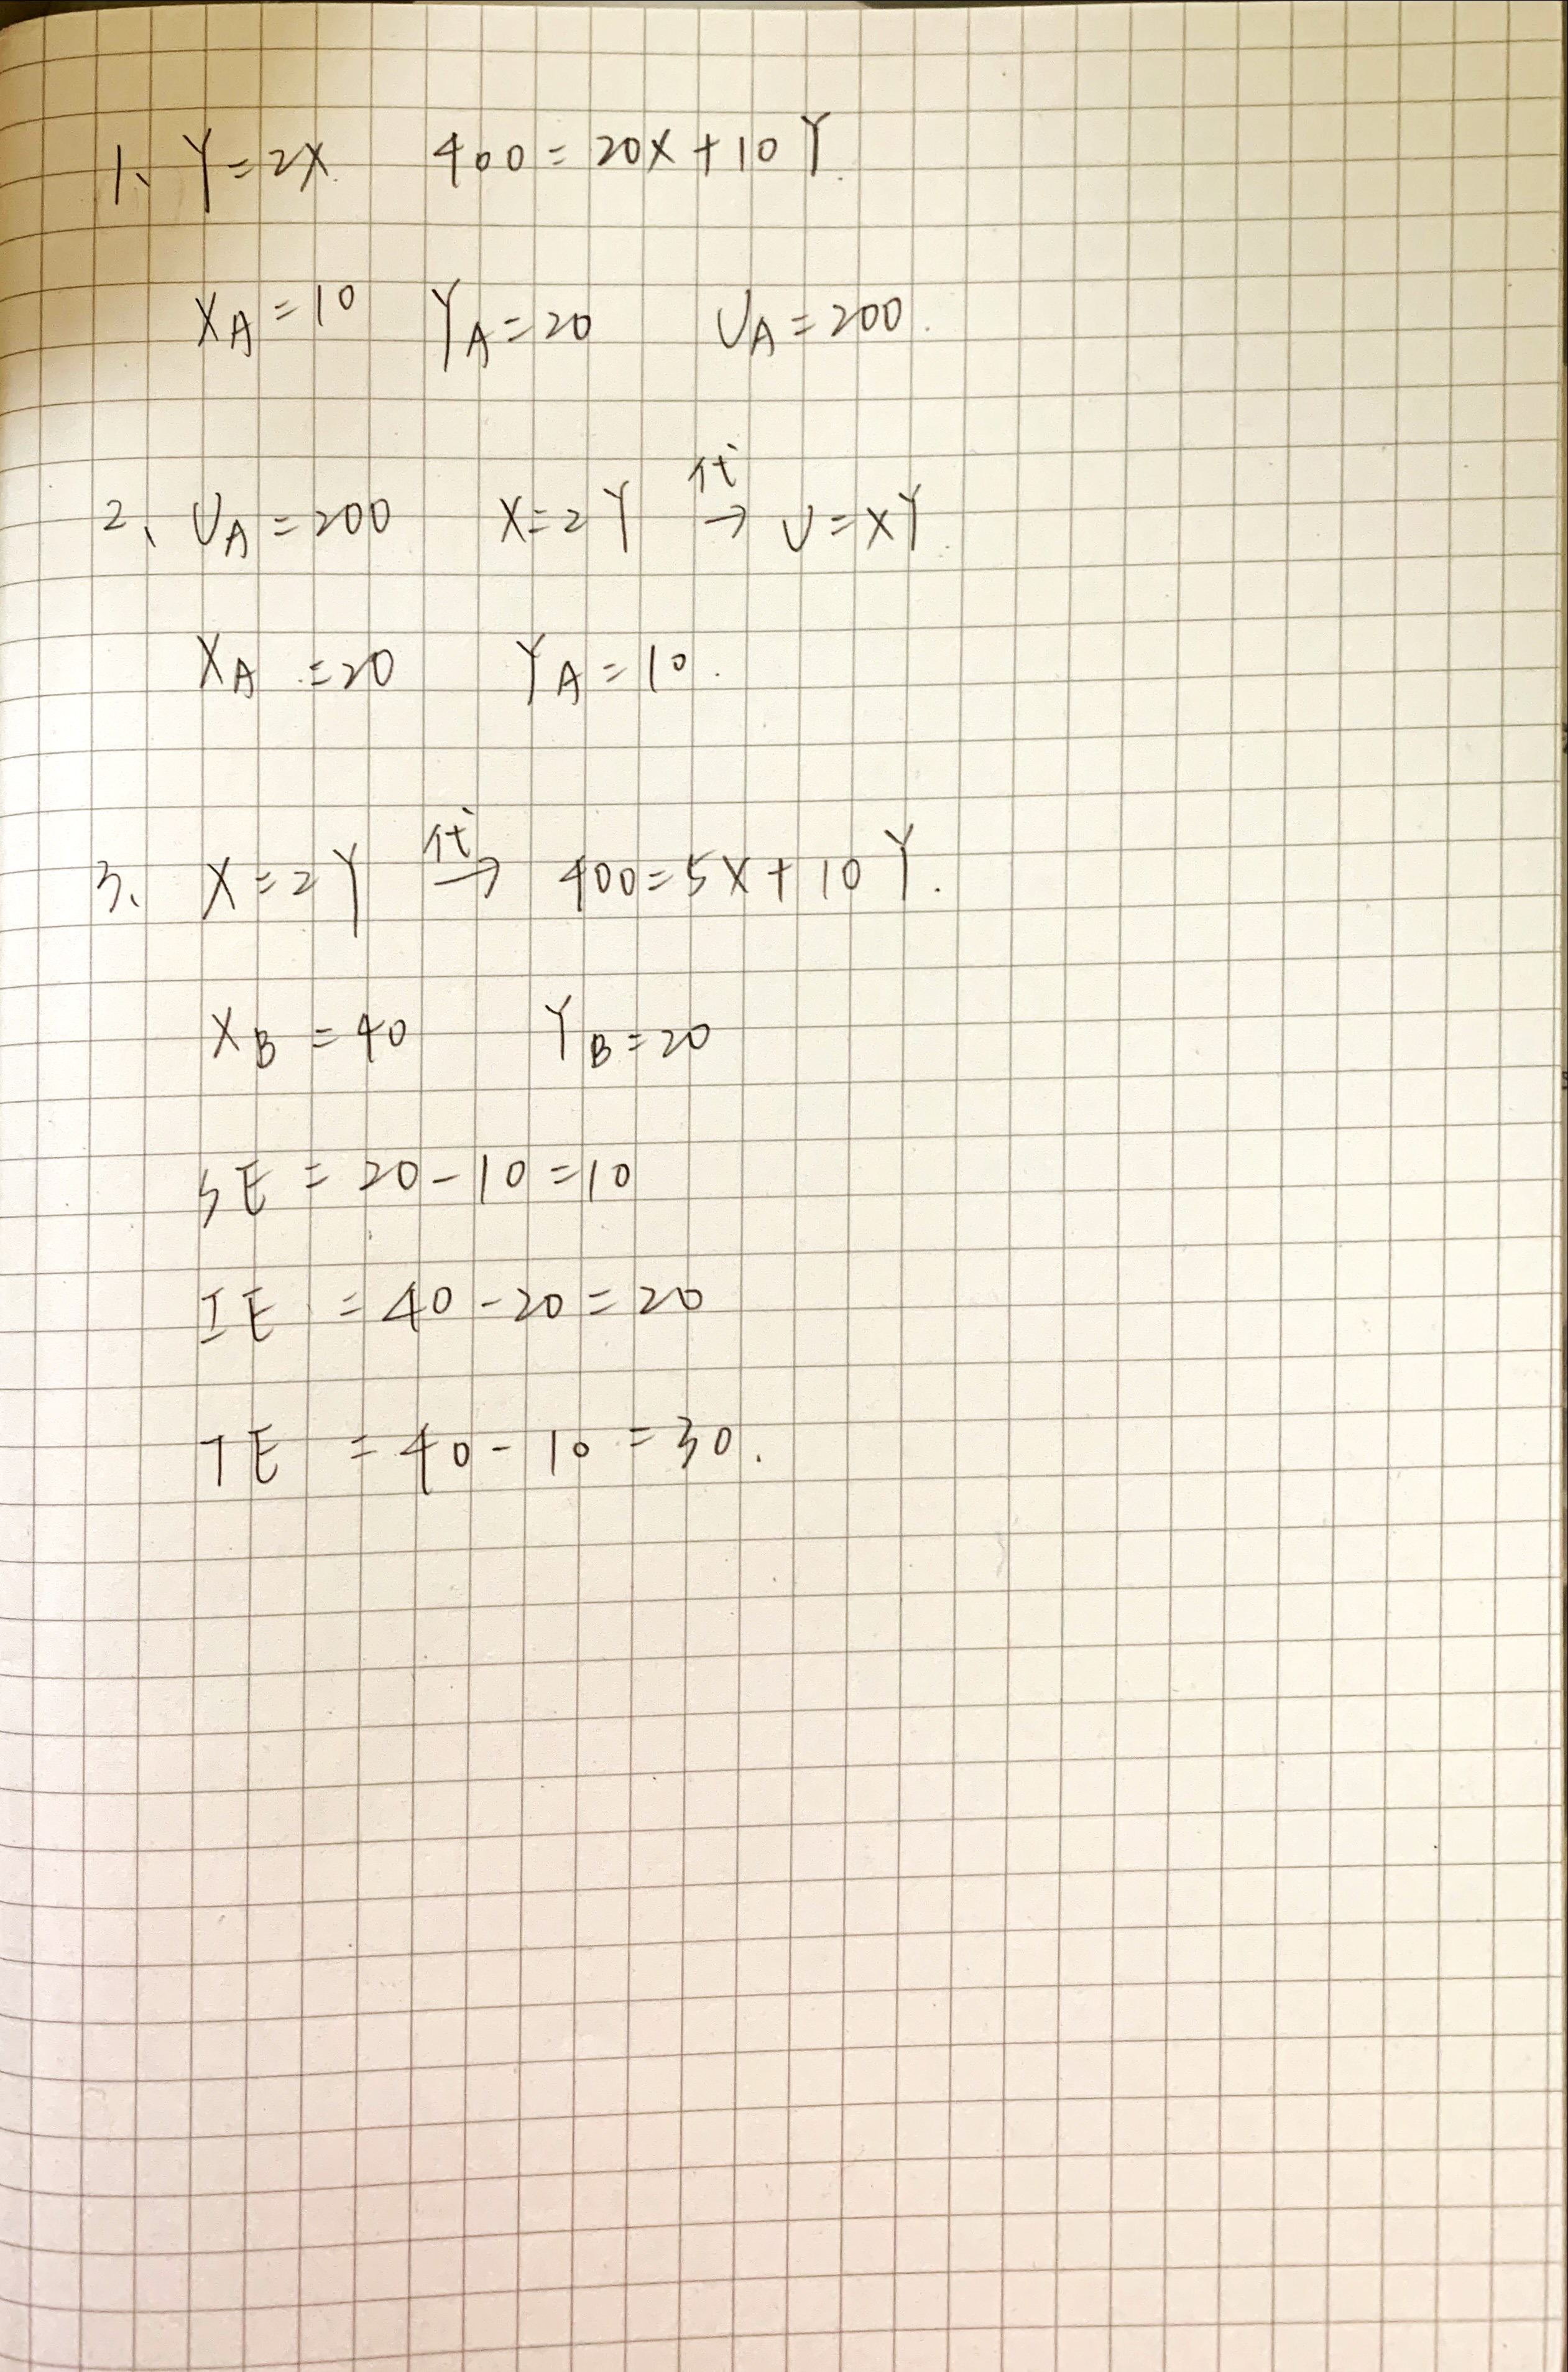 1、Y=2X. 400=20X+10Y.
X_A=10 Y_A=20 U_A=200.
2、U_A=200 X=2Y 代→ U=XY.
X_A=20 Y_A=10.
3、X=2Y 代→ 400=5X+10Y.
X_B=40 Y_B=20
SE=20-10=10
IE=40-20=20
TE=40-10=30.